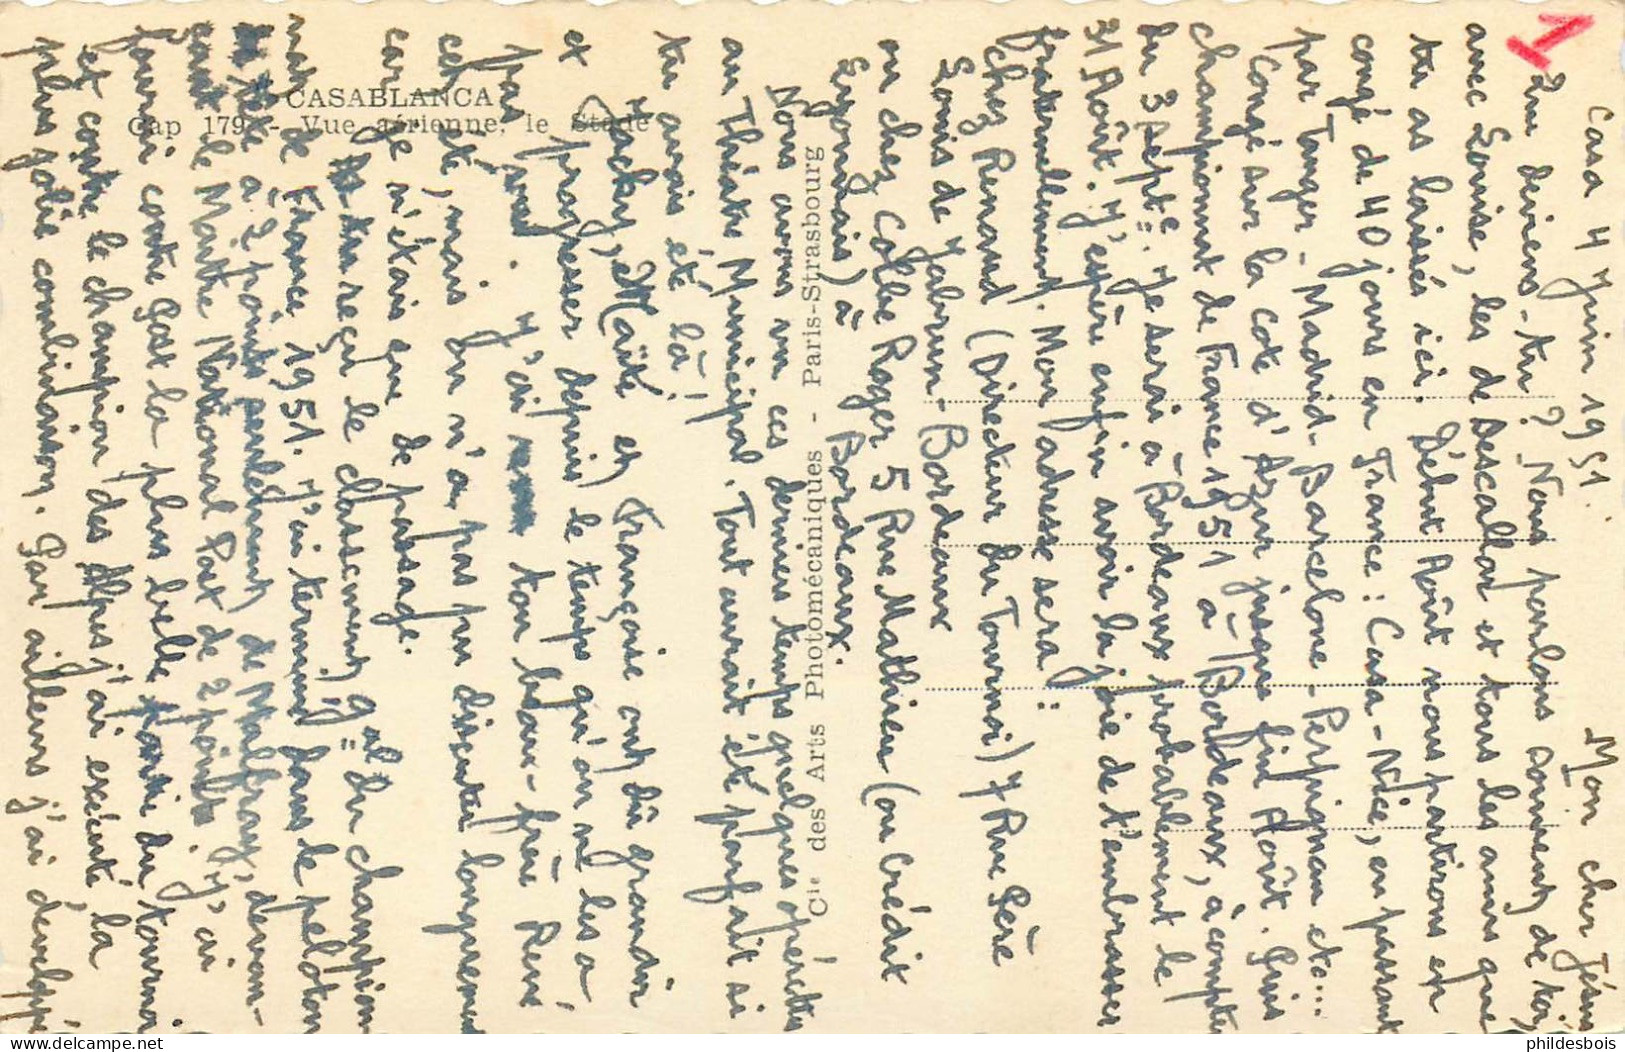 1
Casa 4 Juin 1951.
Mon cher Jésus
Que deviens-tu ? Nous parlons souvent de toi,
avec Louise, les de Descallar et tous les amis que
tu as laissés ici. Début Août nous partirons en
congé de 40 jours en France : Casa-Nice, en passant
par Tanger - Madrid - Barcelone - Perpignan etc...
Congé sur la cote d'Azur jusque fin Août. Puis
championnat de France 1951 à Bordeaux, à compter
du 3 Septe. Je serai à Bordeaux probablement le
31 Août. J'espère enfin avoir la joie de t'embrasser
fraternellement. Mon adresse sera :
chez Renard (Directeur du Tournoi) 7 Rue Père
Louis de Jabrun - Bordeaux
ou chez Colbe Roger 5 Rue Mathieu (ou Crédit
Lyonnais) à Bordeaux.
Nous avons vu ces derniers temps quelques opérettes
au Théâtre Municipal. Tout aurait été parfait si
tu avais été là !
Jacky, Maïté et Françoise ont dû grandir
et progresser depuis le temps qu'on ne les a
pas vus. J'ai ton beau-frère René
cet été, mais on n'a pas pu discuter longuement
car je n'étais que de passage.
As tu reçu le classement gal du champion
nat de France 1951. J'ai terminé dans le peloton
de tête à 2 points seulement de Malfray, devan-
çant le Maître National Post de 2 points. J'y ai
fourni contre Post la plus belle partie du tournoi
et contre le champion des Alpes j'ai exécuté la
plus jolie combinaison. Par ailleurs j'ai développé
CASABLANCA
Cap 179 - Vue aérienne, le Stade
Cie des Arts Photomécaniques - Paris-Strasbourg
phildesbois